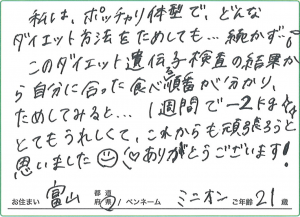 私は、ポッチャリ体型で、どんな
ダイエット方法をためしても…続かず…。
このダイエット遺伝子検査の結果か
ら自分に合った食べ順番が分かり、
ためしてみると…1週間で-2kg
とてもうれしくて、これからも頑張ろうと
思いました ありがとうございます!
お住まい 富山 都道府県/ペンネーム ミニオン ご年齢21歳